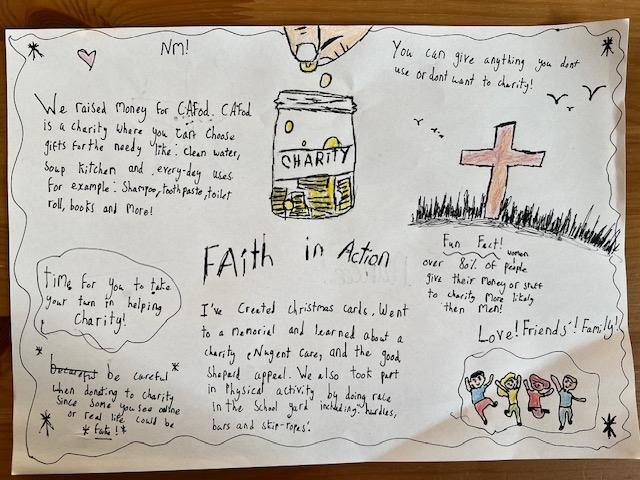 NM!
You can give anything you dont
use or dont want to charity!
We raised money for CAFod. CAFod
is a charity where you can choose
gifts for the needy like: clean water,
soup kitchen and every-day uses
For example: Shampoo, toothpaste, toilet
roll, books and More!
CHARITY
FAith in Action
Fun Fact!
women
over 80% of people
give their money or stuff
to charity more likely
then Men!
Time for you to take
your turn in helping
Charity!
I've Created christmas cards, Went
to a memorial and learned about a
charity Nugent Care, and the good
Shepard appeal. We also took part
in Physical activity by doing race
In the School yard including: hurdles,
bars and skip-ropes.
Love! Friends! Family!
be careful
when donating to charity
Since some you see online
or real life could be
*Fate!*